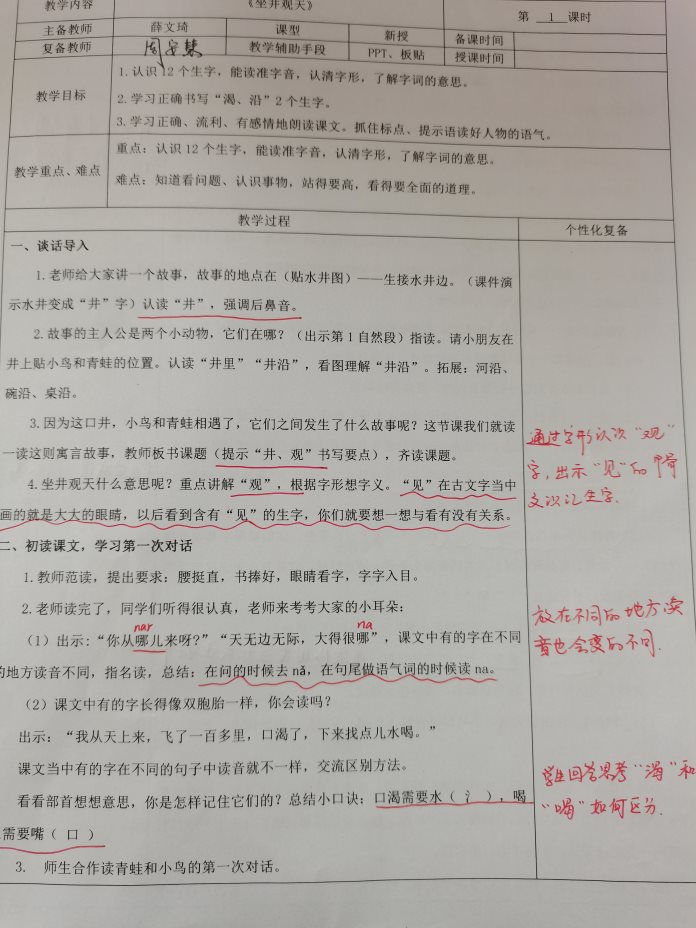 教学内容 《坐井观天》 第 1 课时
主备教师 薛文琦 课型 新授 备课时间
复备教师 教学辅助手段 PPT、板贴 授课时间
教学目标
1.认识12个生字，能读准字音，认清字形，了解字词的意思。
2.学习正确书写“渴、沿”2个生字。
3.学习正确、流利、有感情地朗读课文。抓住标点、提示语读好人物的语气。
教学重点、难点
重点：认识12个生字，能读准字音，认清字形，了解字词的意思。
难点：知道看问题、认识事物，站得要高，看得要全面的道理。
教学过程 个性化复备
一、谈话导入
1.老师给大家讲一个故事，故事的地点在（贴水井图）——生接水井边。（课件演
示水井变成“井”字）认读“井”，强调后鼻音。
2.故事的主人公是两个小动物，它们在哪？（出示第1自然段）指读。请小朋友在
井上贴小鸟和青蛙的位置。认读“井里”“井沿”，看图理解“井沿”。拓展：河沿、
碗沿、桌沿。
3.因为这口井，小鸟和青蛙相遇了，它们之间发生了什么故事呢？这节课我们就读
一读这则寓言故事，教师板书课题（提示“井、观”书写要点），齐读课题。
4.坐井观天什么意思呢？重点讲解“观”，根据字形想字义。“见”在古文字当中
画的就是大大的眼睛，以后看到含有“见”的生字，你们就要想一想与看有没有关系。
通过字形认次“观”
字，出示“见”的甲骨
文识记生字.
二、初读课文，学习第一次对话
1.教师范读，提出要求：腰挺直，书捧好，眼睛看字，字字入目。
2.老师读完了，同学们听得很认真，老师来考考大家的小耳朵：
nar na
（1）出示：“你从哪儿来呀？”“天无边无际，大得很哪”，课文中有的字在不同
的地方读音不同，指名读，总结：在问的时候去 nǎ，在句尾做语气词的时候读 na。
放在不同的地方读
音也会变的不同.
（2）课文中有的字长得像双胞胎一样，你会读吗？
出示：“我从天上来，飞了一百多里，口渴了，下来找点儿水喝。”
课文当中有的字在不同的句子中读音就不一样，交流区别方法。
看看部首想想意思，你是怎样记住它们的？总结小口诀：口渴需要水（氵），喝
需要嘴（ 口 ）
回答思考“渴”和
“喝”如何区分.
3. 师生合作读青蛙和小鸟的第一次对话。